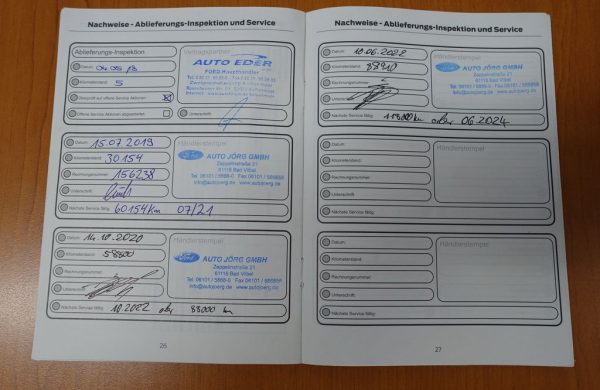 Nachweise - Ablieferungs-Inspektion und Service
Ablieferungs-Inspektion
Datum:
Kilometerstand: 5
Überprüft auf offene Service Aktionen
Offene Service Aktionen abgearbeitet
Vertragspartner
AUTO EDER
FORD Haupthändler
Unterschrift:
Datum: 15.07.2019
Kilometerstand: 30154
Rechnungsnummer: 156238
Unterschrift:
Nächste Service fällig: 60154km 07/21
Händlerstempel
Ford AUTO JÖRG GMBH
Zeppelinstraße 21
61118 Bad Vilbel
Tel 06101 / 5868-0 Fax 06101 / 586868
info@autojoerg.de www.autojoerg.de
Datum: 14.10.2020
Kilometerstand: 58800
Rechnungsnummer:
Unterschrift:
Nächste Service fällig: 10.2022 oder 88000 km
Händlerstempel
Ford AUTO JÖRG GMBH
Zeppelinstraße 21
61118 Bad Vilbel
Tel 06101 / 5868-0 Fax 06101 / 586868
info@autojoerg.de www.autojoerg.de
26
Nachweise - Ablieferungs-Inspektion und Service
Datum: 10.06.2022
Kilometerstand:
Rechnungsnummer:
Unterschrift:
Nächste Service fällig: oder 06.2024
Händlerstempel
Ford AUTO JÖRG GMBH
Zeppelinstraße 21
61118 Bad Vilbel
Tel 06101 / 5868-0 Fax 06101 / 586868
info@autojoerg.de www.autojoerg.de
Datum:
Kilometerstand:
Rechnungsnummer:
Unterschrift:
Nächste Service fällig:
Händlerstempel
Datum:
Kilometerstand:
Rechnungsnummer:
Unterschrift:
Nächste Service fällig:
Händlerstempel
27